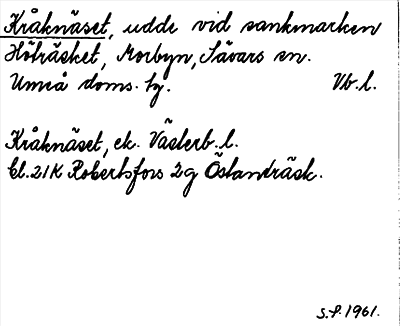 Kråknäset, udde vid sankmarken
Höträsket, Morbyn, Sävars sn.
Umeå doms. hg. Vb. l.
Kråknäset, ek. Västerb. l.
bl. 21K Robertsfors 2g Östanträsk.
S.P. 1961.